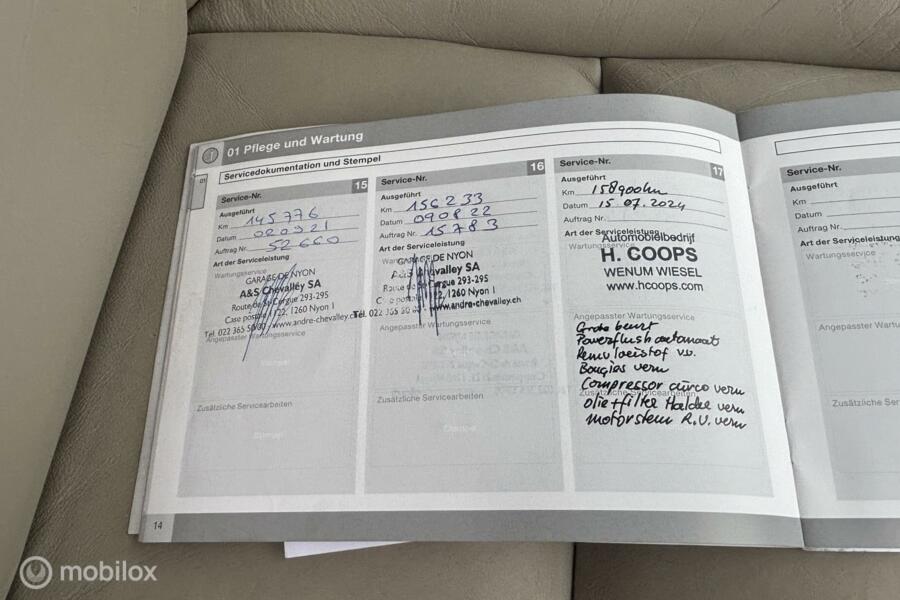 01 Pflege und Wartung
Servicedokumentation und Stempel
01
Service-Nr. 15
Ausgeführt
Km 145776
Datum 020921
Auftrag Nr. 52660
Art der Serviceleistung
Wartungsservice
GARAGE DE NYON
A&S Chevalley SA
Route de St-Cergue 293-295
Case postale 1122, 1260 Nyon 1
Tél. 022 365 50 50 www.andre-chevalley.ch
Angepasster Wartungsservice
Stempel
Zusätzliche Servicearbeiten
Stempel
14
Service-Nr. 16
Ausgeführt
Km 156233
Datum 090822
Auftrag Nr. 15783
Art der Serviceleistung
GARAGE DE NYON
A&S Chevalley SA
Route de St-Cergue 293-295
Case postale 1122, 1260 Nyon 1
Tél. 022 365 50 50 www.andre-chevalley.ch
Angepasster Wartungsservice
Zusätzliche Servicearbeiten
Stempel
Service-Nr. 17
Ausgeführt
Km 158900km
Datum 15.07.2024
Auftrag Nr.
Art der Serviceleistung
Wartungsservice
Automobielbedrijf
H. COOPS
WENUM WIESEL
www.hcoops.com
Angepasster Wartungsservice
Grote beurt
Powerflush automaat
Remvloeistof vv.
Bougies vern
Compressor airco vern
Zusätzliche Servicearbeiten
Oliefilter Halder vern
motorsteun R.V. vern
Service-Nr.
Ausgeführt
Km
Datum
Auftrag Nr.
Art der Serviceleistung
Wartungsservice
Angepasster Wartu
Zusätzliche Serv
mobilox